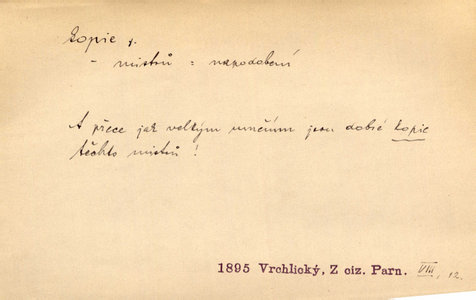 kopie f.
- mistrů = napodobení
A přece jak velkým uměním jsou dobré kopie
těchto mistrů!
1895 Vrchlický, Z ciz. Parn. VIII, 12.